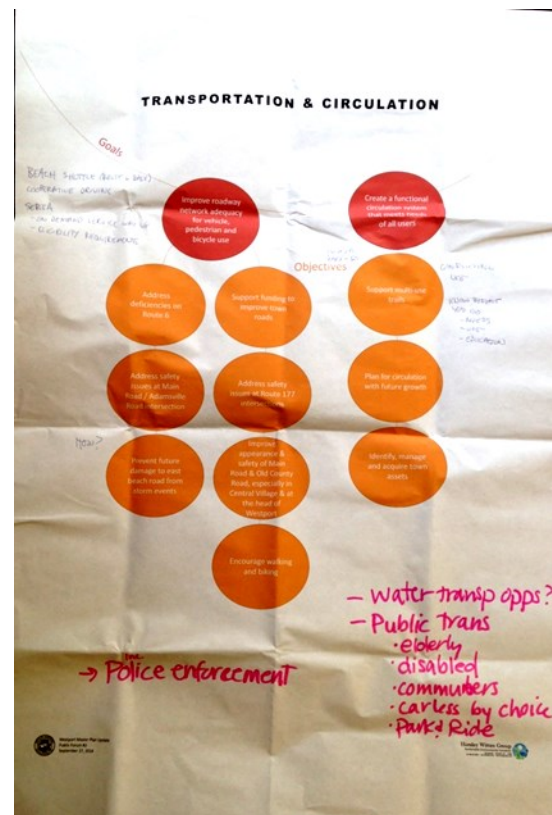 TRANSPORTATION & CIRCULATION
Goals
BEACH SHUTTLE
COOPERATIVE DRIVING
SRTA
- ON DEMAND SERVICE
- ELIGIBILITY REQUIREMENTS
Improve roadway
network adequacy
for vehicle,
pedestrian and
bicycle use
Create a functional
circulation system
that meets needs
of all users
Objectives
Address
deficiencies on
Route 6
Support funding to
improve town
roads
Support multi-use
trails
USE
- EDUCATION
Address safety
issues at Main
Road / Adamsville
Road intersection
Address safety
issues at Route 177
intersections
Plan for circulation
with future growth
How?
Prevent future
damage to east
beach road from
storm events
Improve
appearance &
safety of Main
Road & Old County
Road, especially in
Central Village & at
the head of
Westport
Identify, manage
and acquire town
assets
Encourage walking
and biking
→ Police enforcement
inc
- Water transp opps?
- Public Trans
· elderly
· disabled
· commuters
· carless by choice
· Park & Ride
Westport Master Plan Update
Public Forum #2
September 27, 2014
Horsley Witten Group